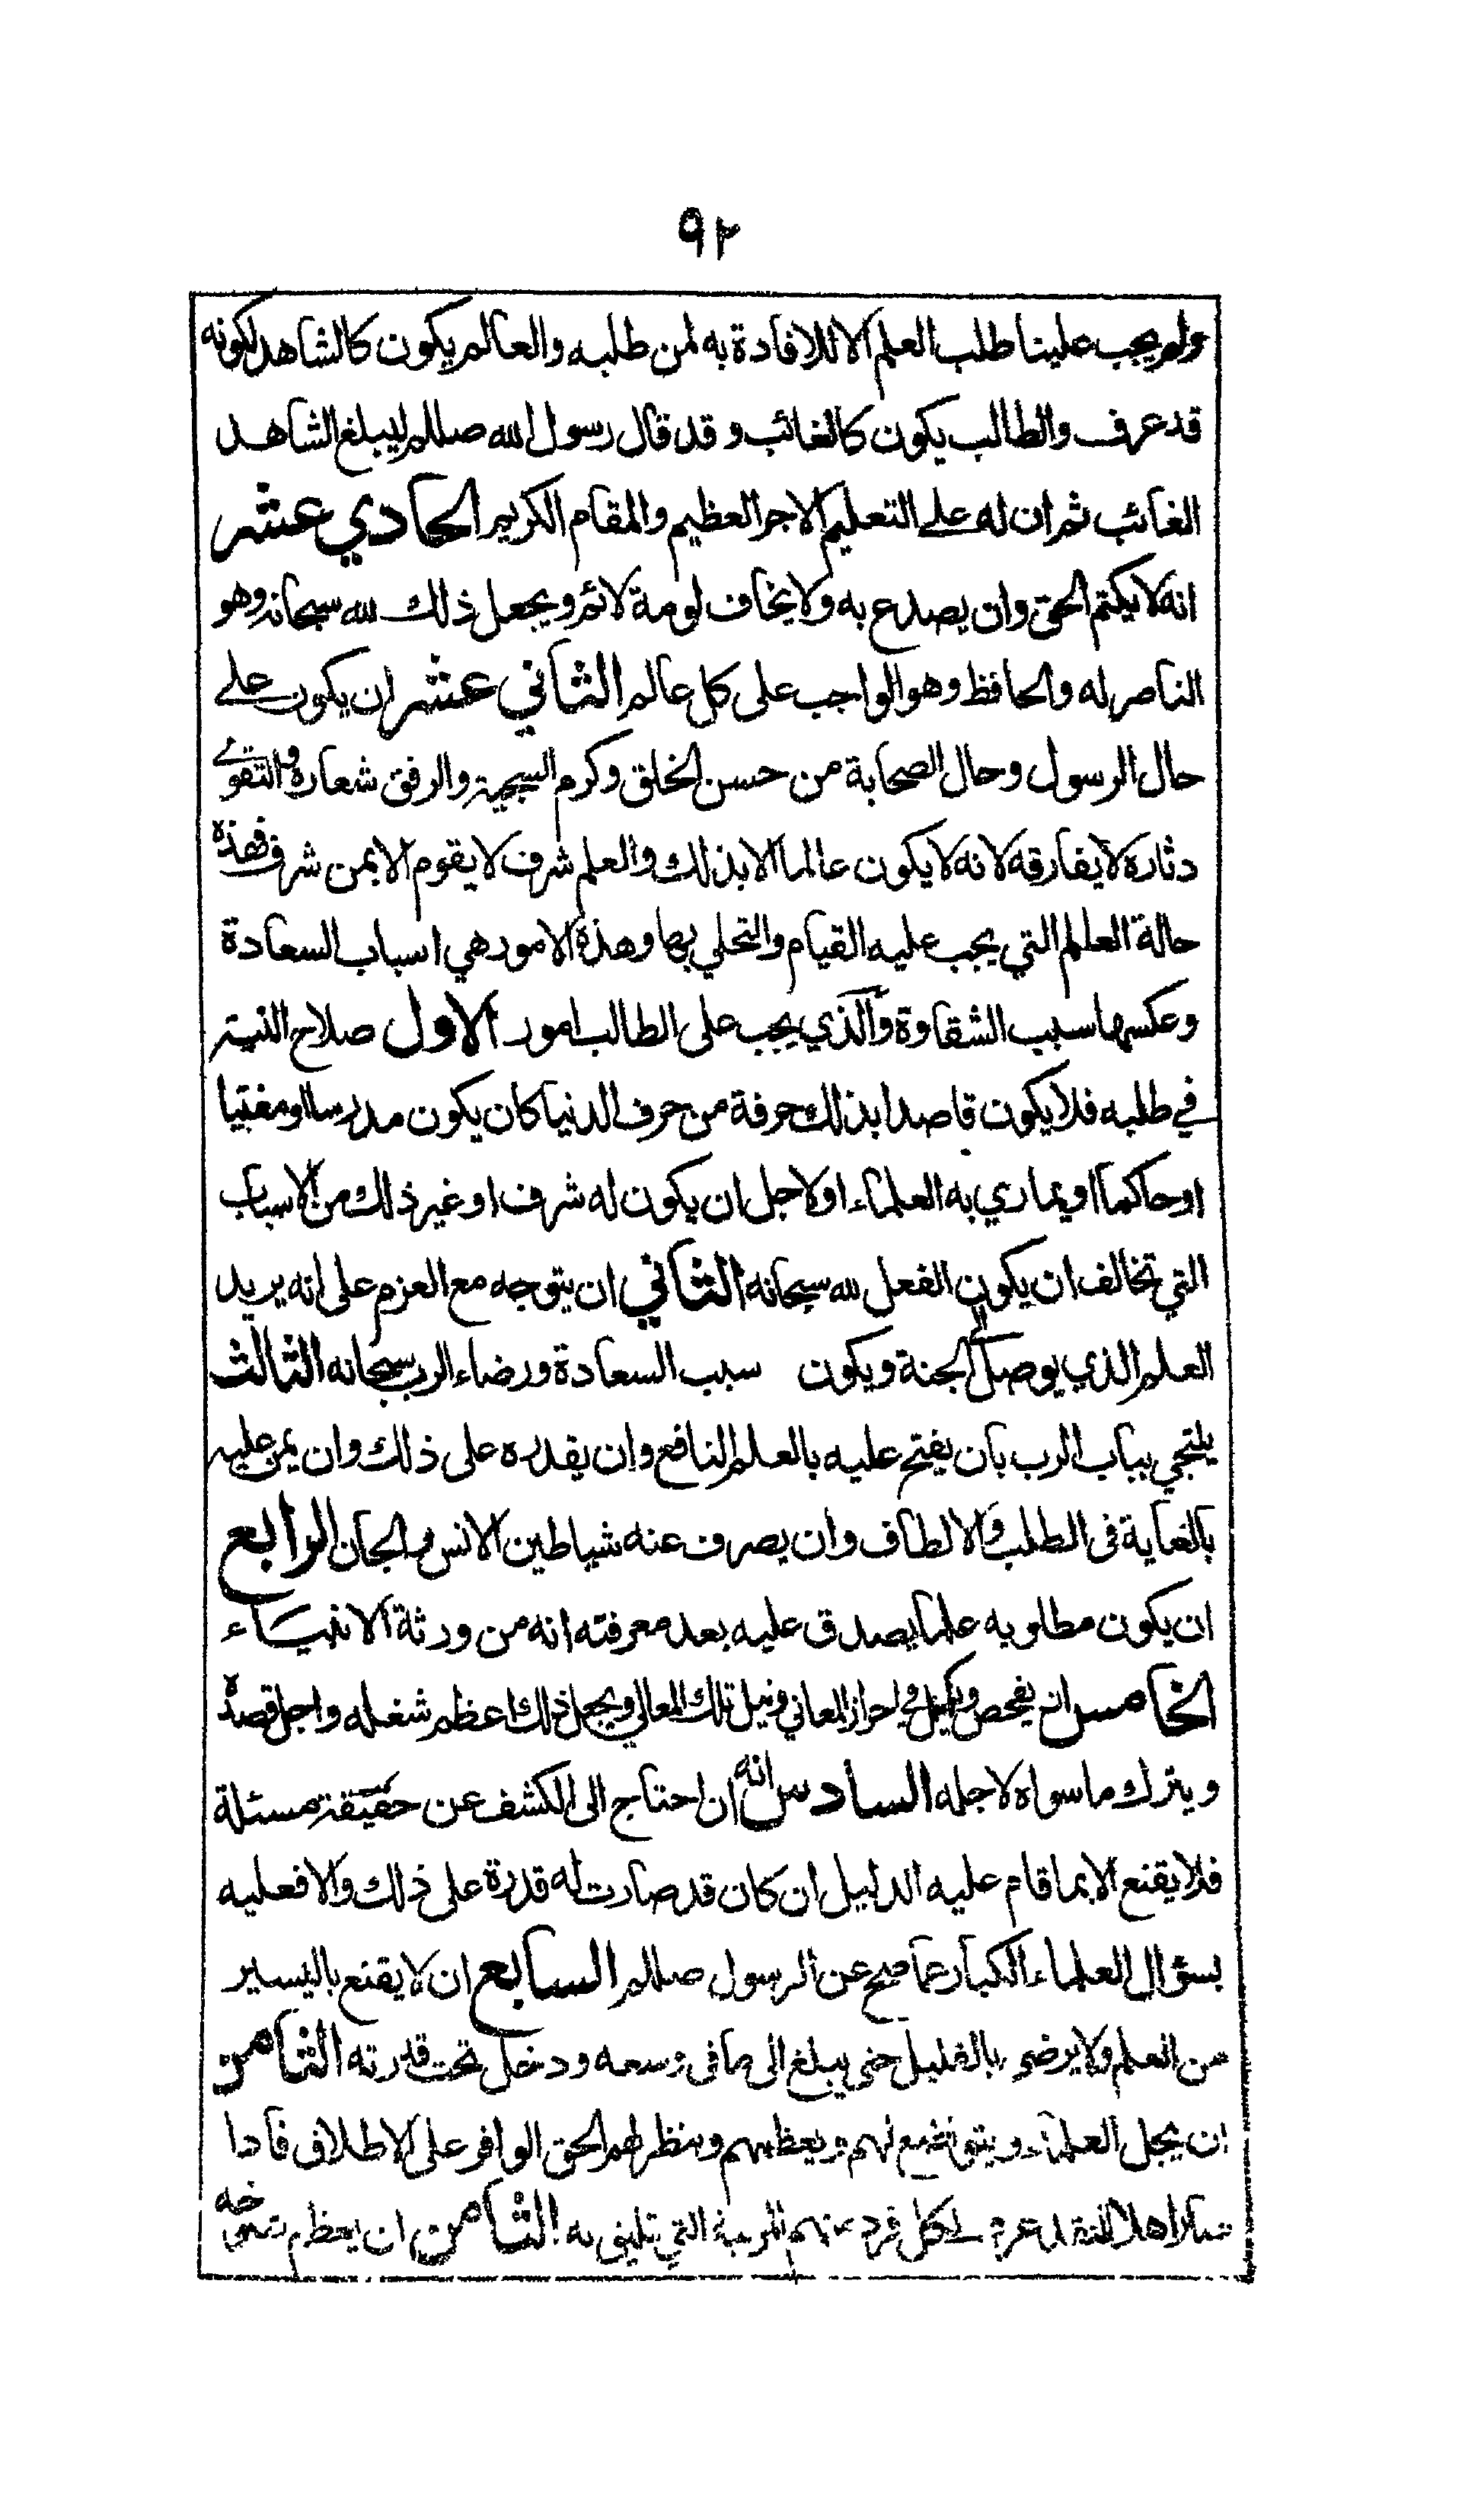 ٩٢
ولم يجب علينا طلب العلم الا للافادة به لمن طلبه والعالم يكون كالشاهد لكونه
قد عرف والطالب يكون كالغائب وقد قال رسول الله صللم ليبلغ الشاهد
الغائب ثم ان له على التعليم الاجر العظيم والمقام الكريم الحادي عشر
انه لا يكتم الحق وان يصدع به ولا يخاف لومة لائم ويجعل ذلك لله سبحانه وهو
الناصر له والحافظ وهو الواجب على كل عالم الثاني عشر ان يكون على
حال الرسول وحال الصحابة من حسن الخلق وكرم السجية والرفق شعاره والتقوى
دثاره لا يفارقه لانه لا يكون عالما الا بذلك والعلم شرف لا يقوم الا بمن شرف فهذه
حالة العالم التي يجب عليه القيام والتحلي بها وهذه الامور هي اسباب السعادة
وعكسها سبب الشقاوة والذي يجب على الطالب امور الاول صلاح النية
في طلبه فلا يكون قاصدا بذلك حرفة من حرف الدنيا كان يكون مدرسا او مفتيا
او حاكما او يماري به العلماء او لاجل ان يكون له شرف او غير ذلك من الاسباب
التي تخالف ان يكون الفعل لله سبحانه الثاني ان يتوجه مع العزم على انه يريد
العلم الذي يوصل الى الجنة ويكون سبب السعادة ورضاء الرب سبحانه الثالث
يلتجي بباب الرب بان يفتح عليه بالعلم النافع وان يقدره على ذلك وان يمن عليه
بالغاية فى الطلب والالطاف وان يصرف عنه شياطين الانس والجان الرابع
ان يكون مطلوبه علما يصدق عليه بعد معرفته انه من ورثة الانبياء
الخامس ان يفحص في احراز المعاني ونيل تلك المعالي ويجعل ذلك اعظم شغله واجل قصده
ويترك ما سواه لاجله السادس انه ان احتاج الى الكشف عن حقيقة مسئلة
فلا يقنع الا بما قام عليه الدليل ان كان قد صارت له قدرة على ذلك والا فعليه
بسؤال العلماء الكبار عما صح عن الرسول صللم السابع ان لا يقنع باليسير
من العلم ولا يرضى بالقليل حتى يبلغ الى ما فى وسعه ودخل تحت قدرته الثامن
ان يجل العلماء ويتواضع لهم ويعظمهم وينظر لهم الحق الوافر على الاطلاق فاذا
لكل فرد منهم المرتبة التي تليق به الثامن ان يعظم شيخه